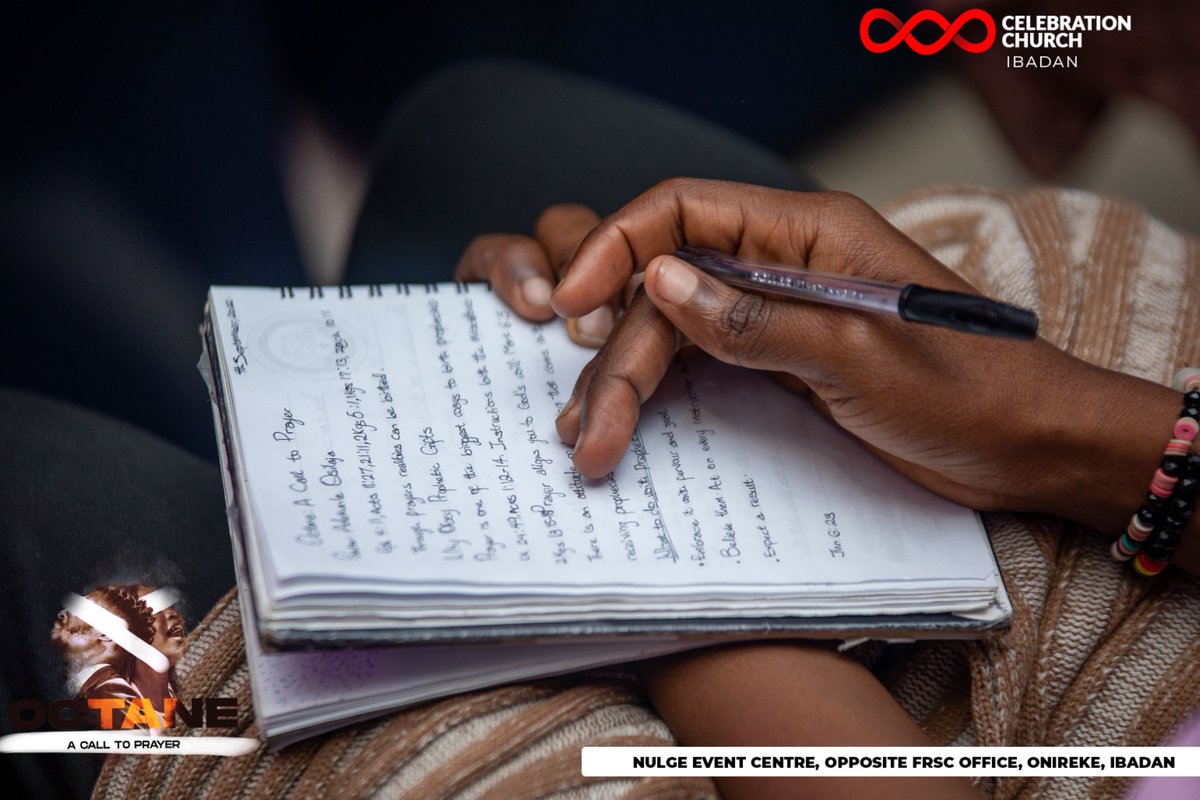 CELEBRATION
CHURCH
IBADAN
9th September, 2022
Octane A Call to Prayer
Pastor Adekunle Osilaja
Acts 11:27, 21:11, 2Kgs 5:1, 1Kgs 17:13,
Through prayers realities can be birthed.
Why Obey Prophetic Gifts
Prayer is one of the biggest ways to birth prophecies
Lk 24:49, Acts 1:12-14. Instructions birth the miraculous
Prayer aligns you to God's will.
There is an attitude
receiving prophecies
What to do with Prophecies
• Embrace it with fervour and zeal
• Believe them Act on every instruction
• Expect a result.
6:23
OCTANE
A CALL TO PRAYER
NULGE EVENT CENTRE, OPPOSITE FRSC OFFICE, ONIREKE, IBADAN